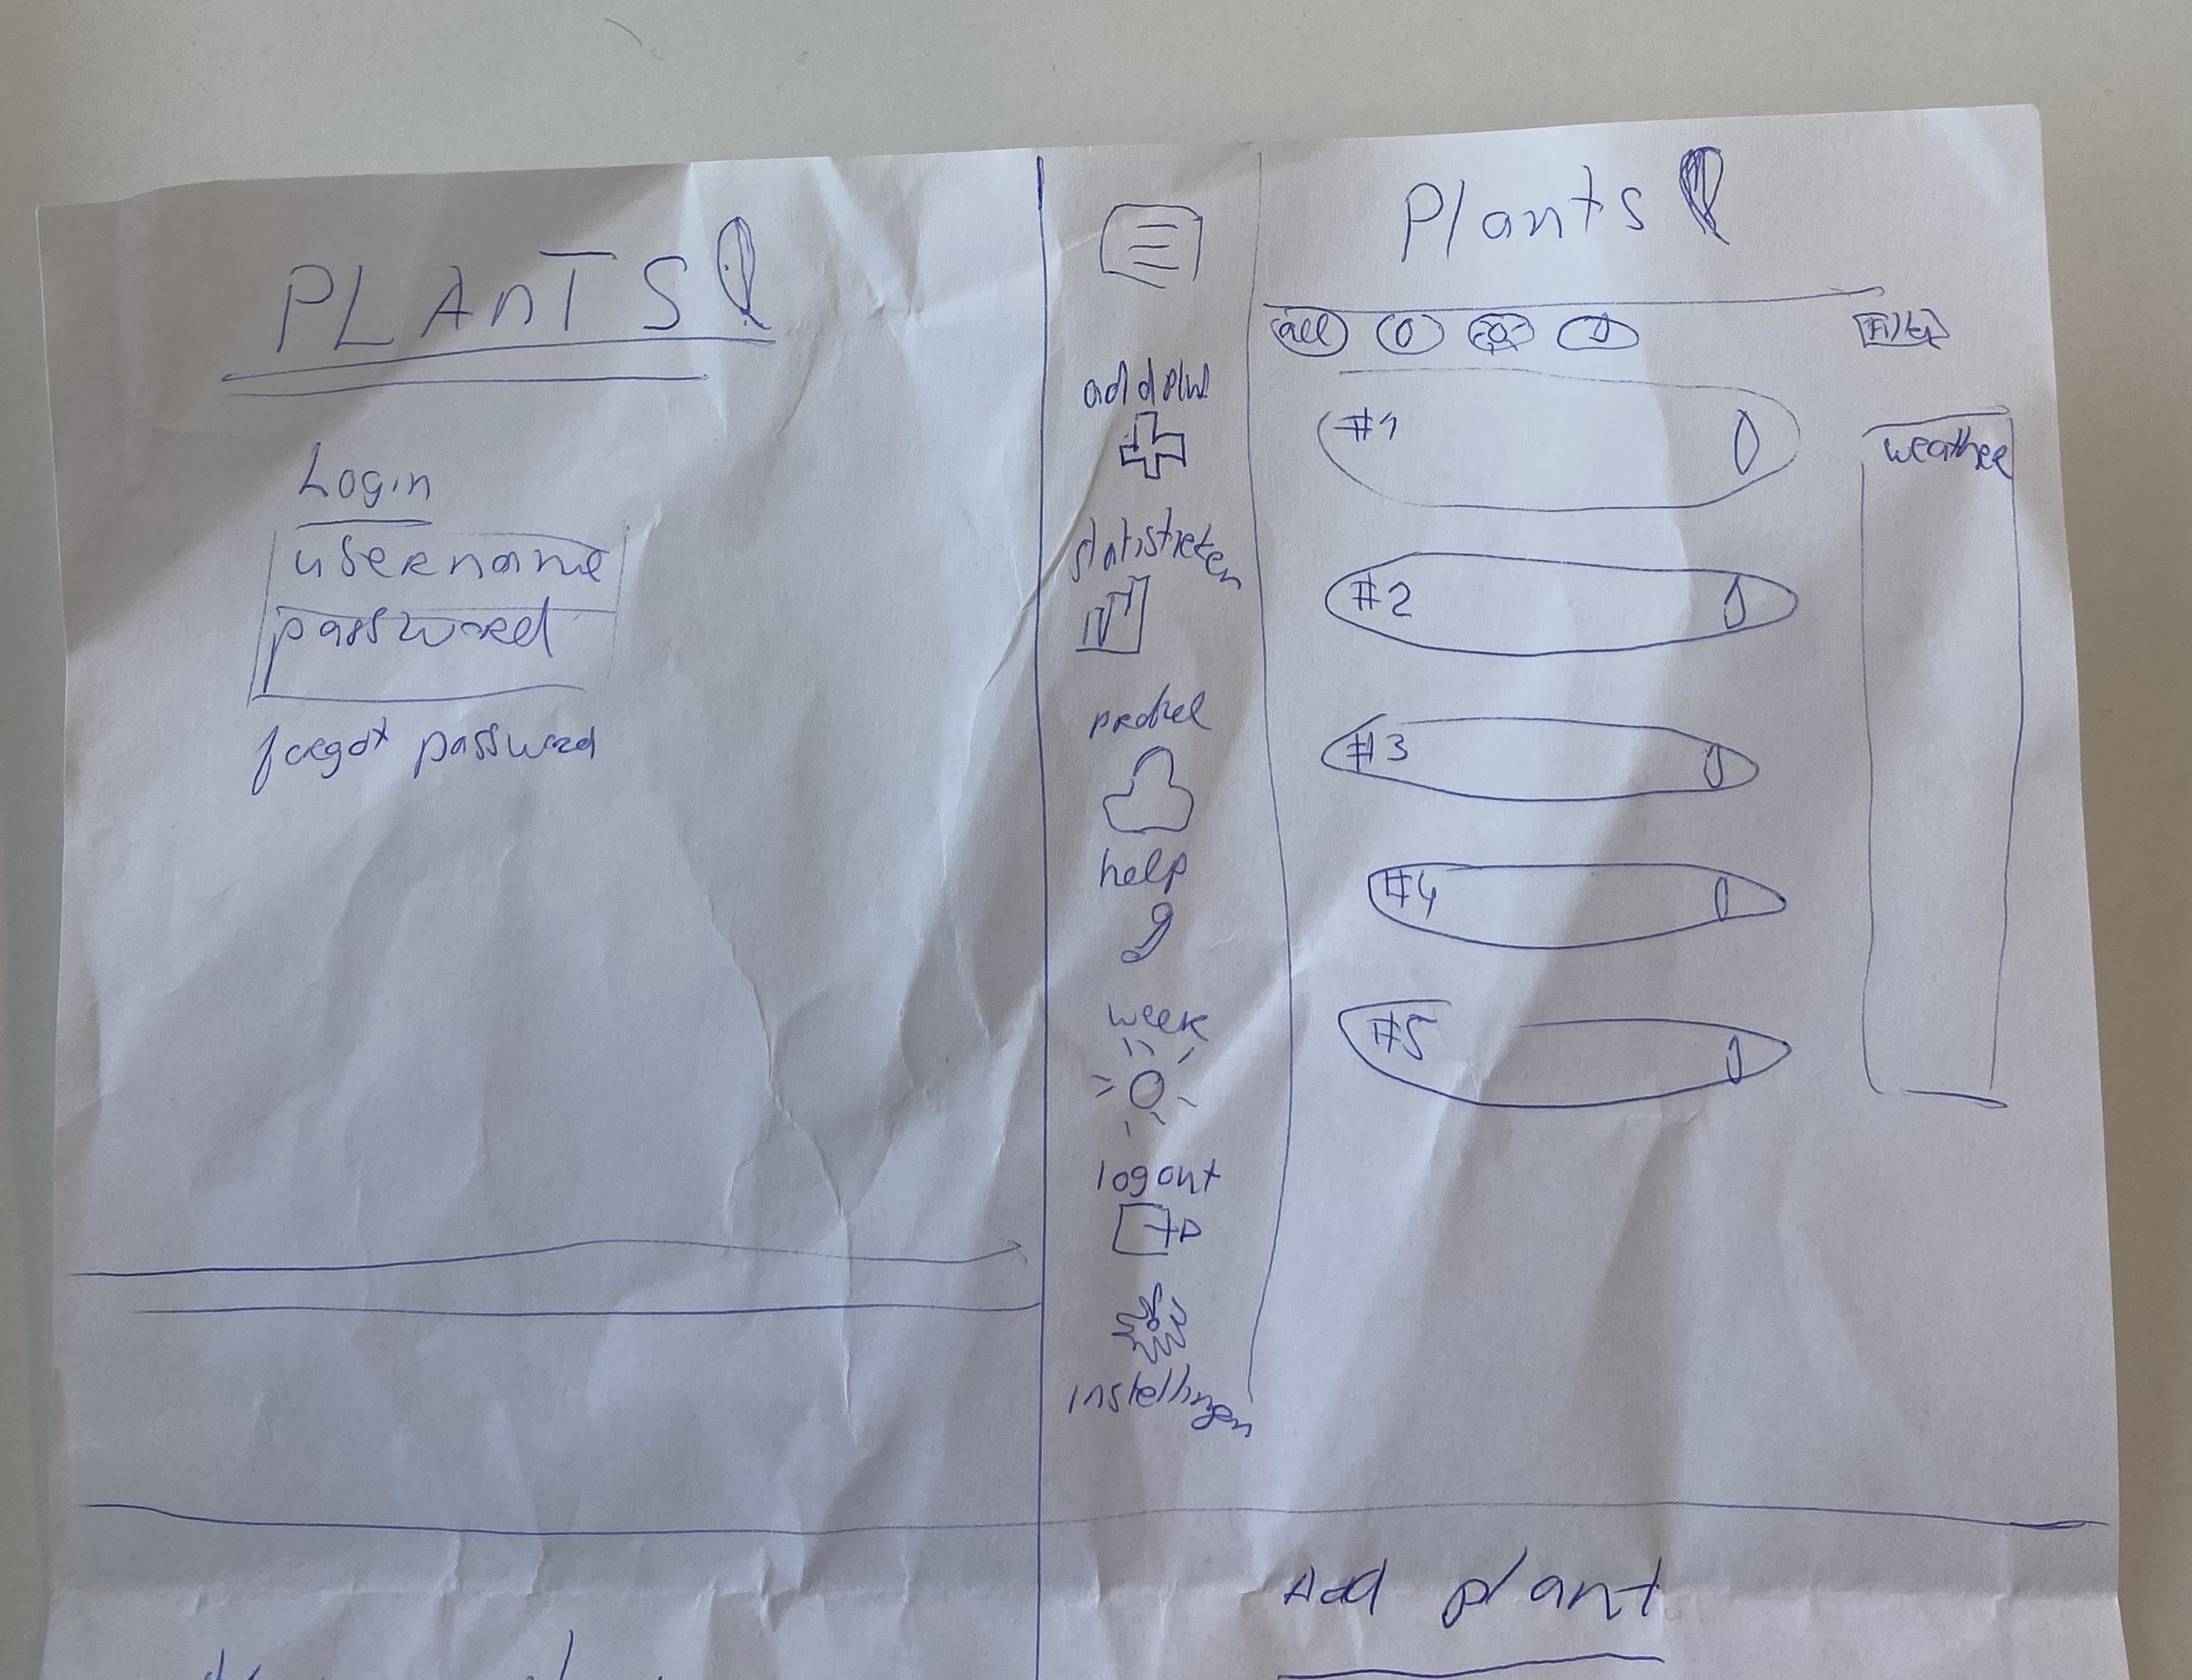 PLAnTS
Login
username
password
forgot password
statistieken
profiel
help
week
logout
instellingen
Plants
all
Filter
#1
#2
#3
#4
#5
weather
Add plant